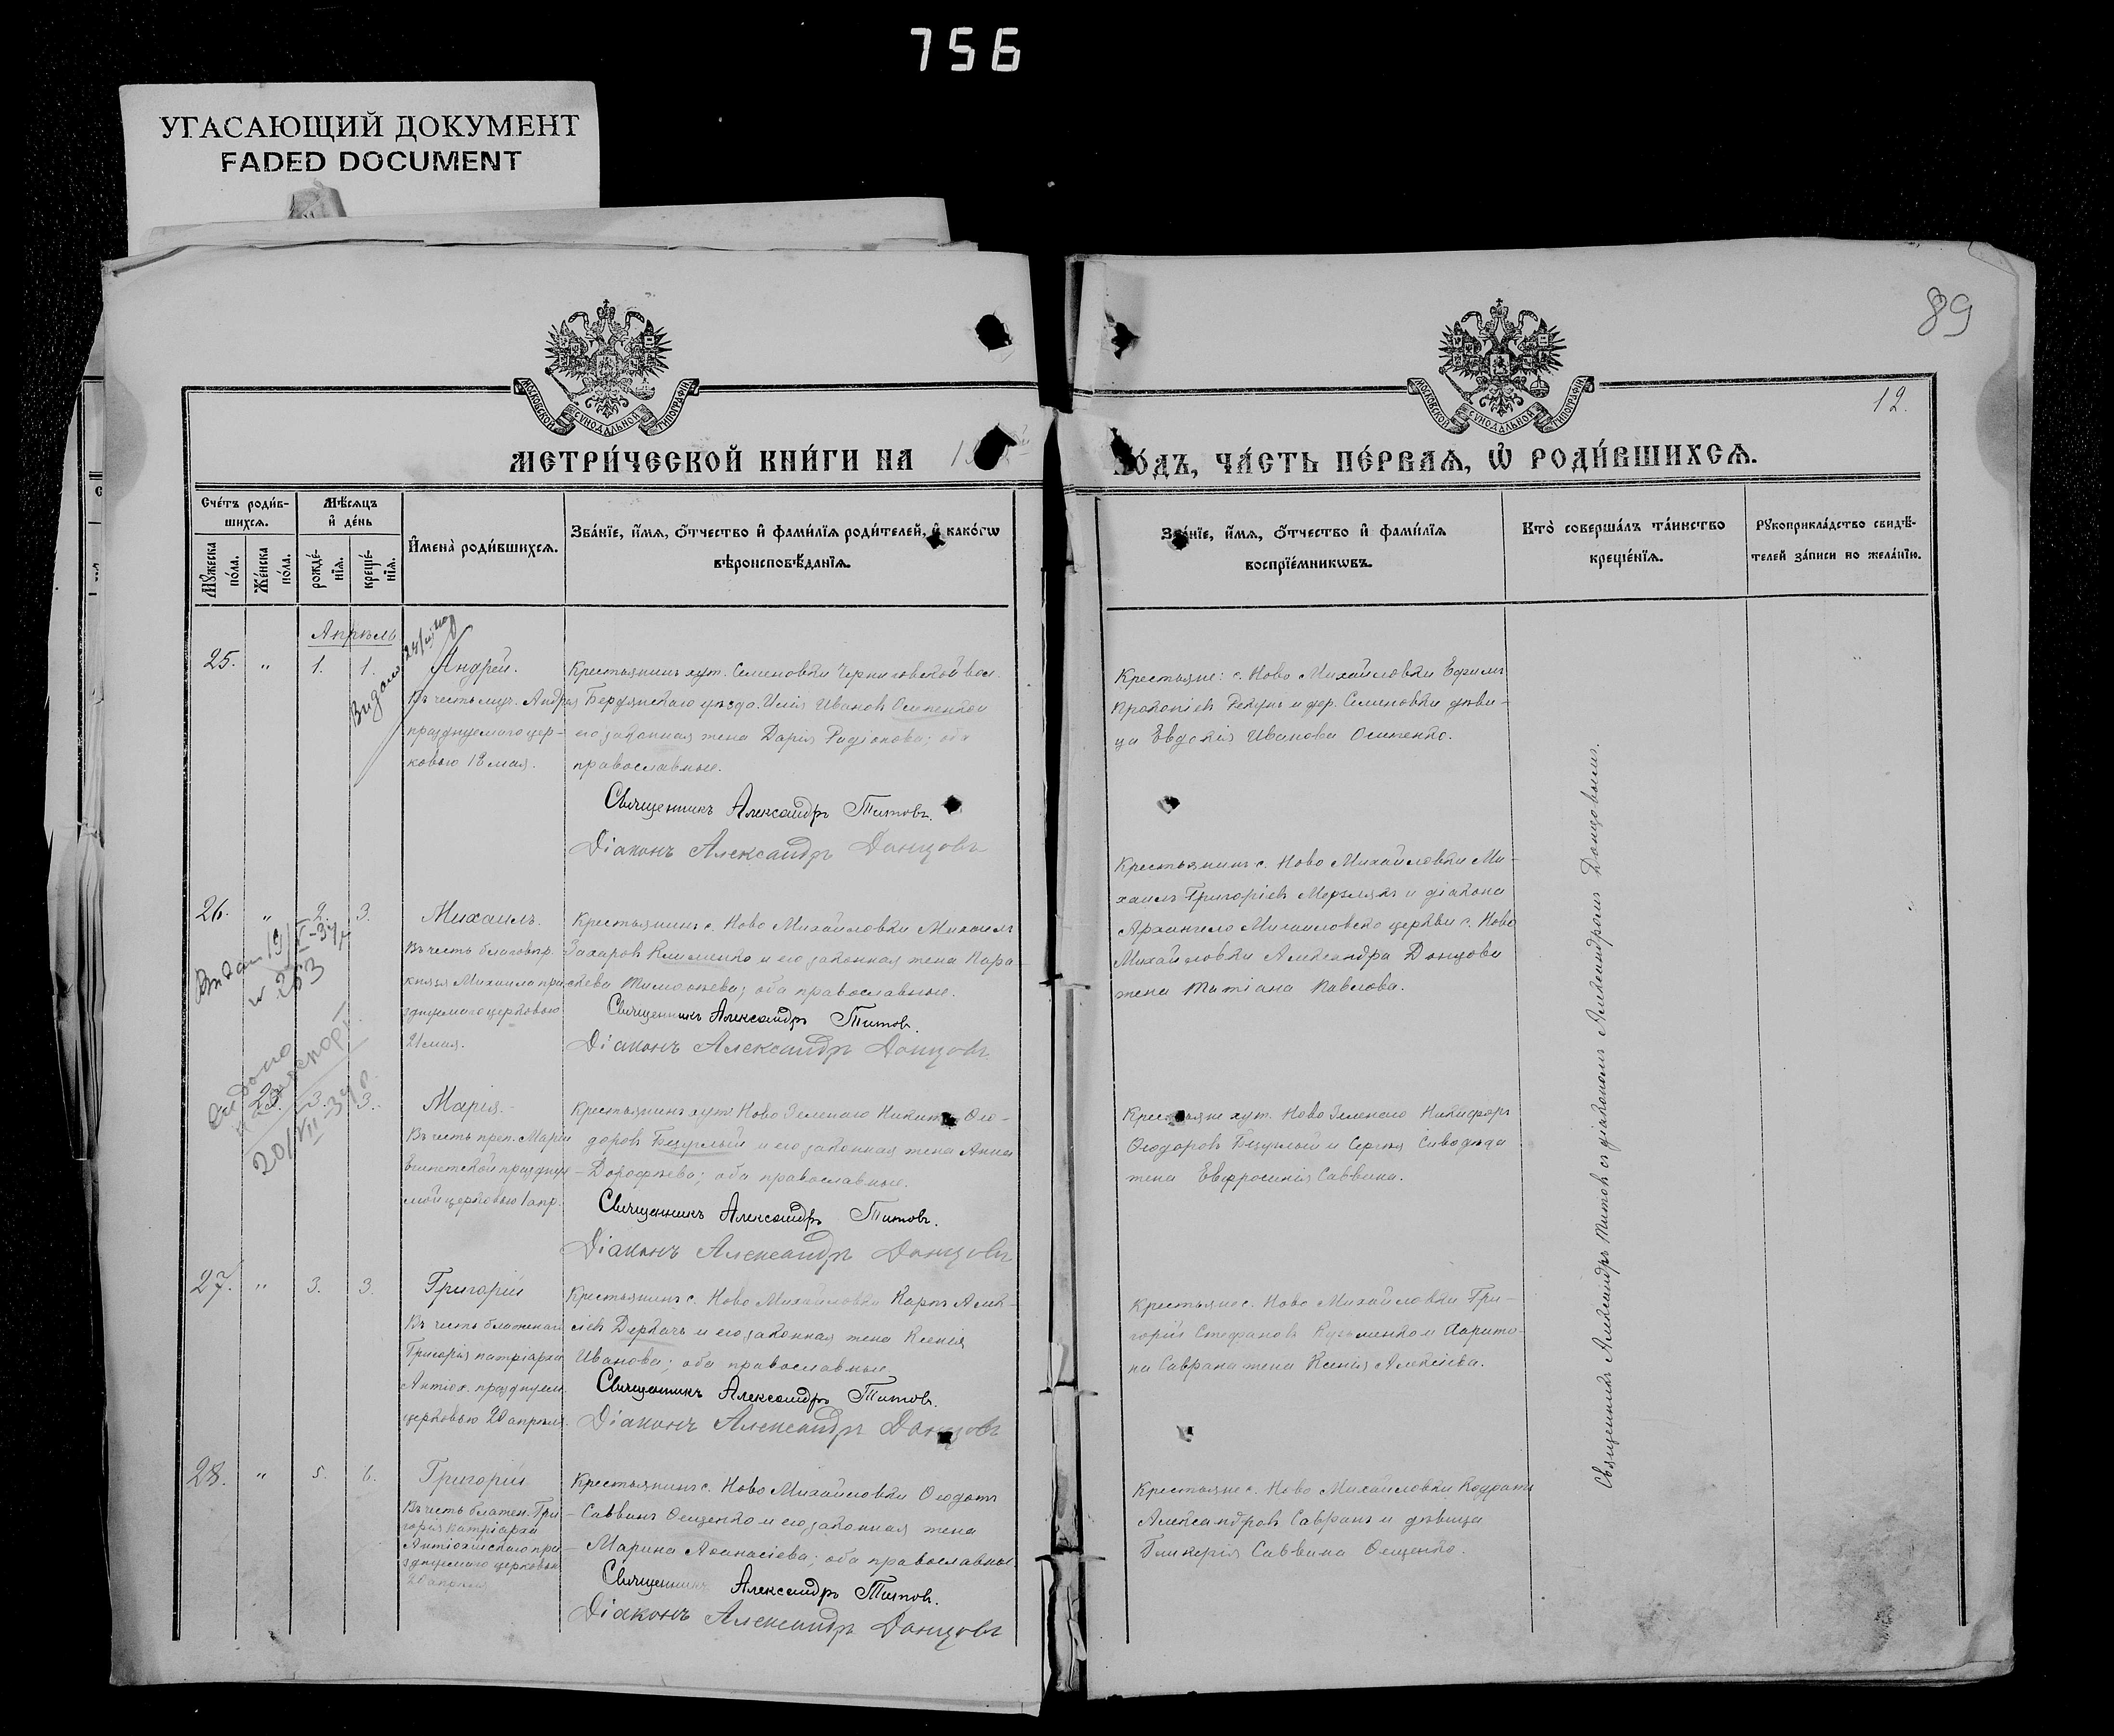 756
УГАСАЮЩИЙ ДОКУМЕНТ
FADED DOCUMENT
89
12.
МОСКОВСКОЙ СѴНОДАЛЬНОЙ ТИПОГРАФІИ
МОСКОВСКОЙ СѴНОДАЛЬНОЙ ТИПОГРАФІИ
МЕТРИ́ЧЕСКОЙ КНИ́ГИ НА
ГО́ДЪ, ЧА́СТЬ ПЕ́РВАѦ, Ѡ҆ РОДИ́ВШИХСѦ.
Сче́тъ роди́в-
шихсѧ.
Мꙋ́жеска по́ла.
Же́нска по́ла.
Мѣ́сѧцъ
и҆ де́нь
рожде́-
нїѧ.
креще́-
нїѧ.
И҆мена̀ роди́вшихсѧ.
Зва́нїе, и҆́мѧ, ѻ҆́тчество и҆ фами́лїѧ роди́телей, и҆ како́гѡ
вѣроисповѣ́данїѧ.
Зва́нїе, и҆́мѧ, ѻ҆́тчество и҆ фами́лїѧ
воспрїе́мникѡвъ.
Кто̀ соверша́лъ та́инство
креще́нїѧ.
Рꙋкоприкла́дство свидѣ́-
телей за́писи по жела́нїю.
Апрѣль
25. " 1. 1. Андрей.
Въ честь муч. Андрея
празднуемаго цер-
ковью 18 мая.
Крестьянинъ хут. Семеновки Черниговской вол.
Бердянскаго уѣзда Илія Ивановъ Осипенко и
его законная жена Дарія Радіонова; оба
православные.
Священникъ Александръ Титовъ.
Діаконъ Александръ Донцовъ
Крестьяне: с. Ново Михайловки Ефимъ
Прокопіевъ Декунъ и дер. Семеновки дѣви-
ца Евдокія Иванова Осипенко.
26. " 2. 3. Михаилъ.
Въ честь благовѣр.
князя Михаила пра-
зднуемаго церковью
21 мая.
Крестьянинъ с. Ново Михайловки Михаилъ
Захаровъ Клименко и его законная жена Пара-
скева Тимофѣева; оба православные.
Священникъ Александръ Титов.
Діаконъ Александръ Донцовъ
Крестьянинъ с. Ново Михайловки Ми-
хаилъ Григоріевъ Мерзлякъ и діакона
Архангело Михаиловской церкви с. Ново
Михайловки Александра Донцова
жена Татіана Павлова.
23. 3. 3. Марія.
Въ честь преп. Маріи
Египетской празднуе-
мой церковью 1 апр.
Крестьянинъ хут. Ново Зеленаго Никита Ѳео-
доровъ Безуглый и его законная жена Анна
Дорофѣева; оба православные.
Священникъ Александръ Титовъ.
Діаконъ Александръ Донцовъ
Крестьяне хут. Ново Зеленаго Никифоръ
Ѳеодоровъ Безуглый и Сергѣя Сиводѣда
жена Евфросинія Саввина.
27. " 3. 3. Григорій
Въ честь блаженаго
Григорія патріарха
Антіох. празднуем.
церковью 20 апрѣля.
Крестьянинъ с. Ново Михайловки Карпъ Алек-
сіевъ Деркачъ и его законная жена Ксенія
Иванова; оба православные.
Священникъ Александръ Титов.
Діаконъ Александръ Донцовъ
Крестьяне с. Ново Михайловки Гри-
горій Стефановъ Кузьменко и Харито-
на Саврана жена Ксенія Алексіева.
28. " 5. 6. Григорій
Въ честь блажен. Гри-
горія патріарха
Антіохійскаго пра-
зднуемаго церковью
20 апрѣля
Крестьянинъ с. Ново Михайловки Ѳеодотъ
Саввинъ Ѳещенко и его законная жена
Марина Аѳанасіева; оба православные.
Священникъ Александръ Титов.
Діаконъ Александръ Донцовъ
Крестьяне с. Ново Михайловки Кодратъ
Александровъ Савранъ и дѣвица
Гликерія Саввина Ѳещенко.
Священникъ Александръ Титовъ съ діакономъ Александромъ Донцовымъ.